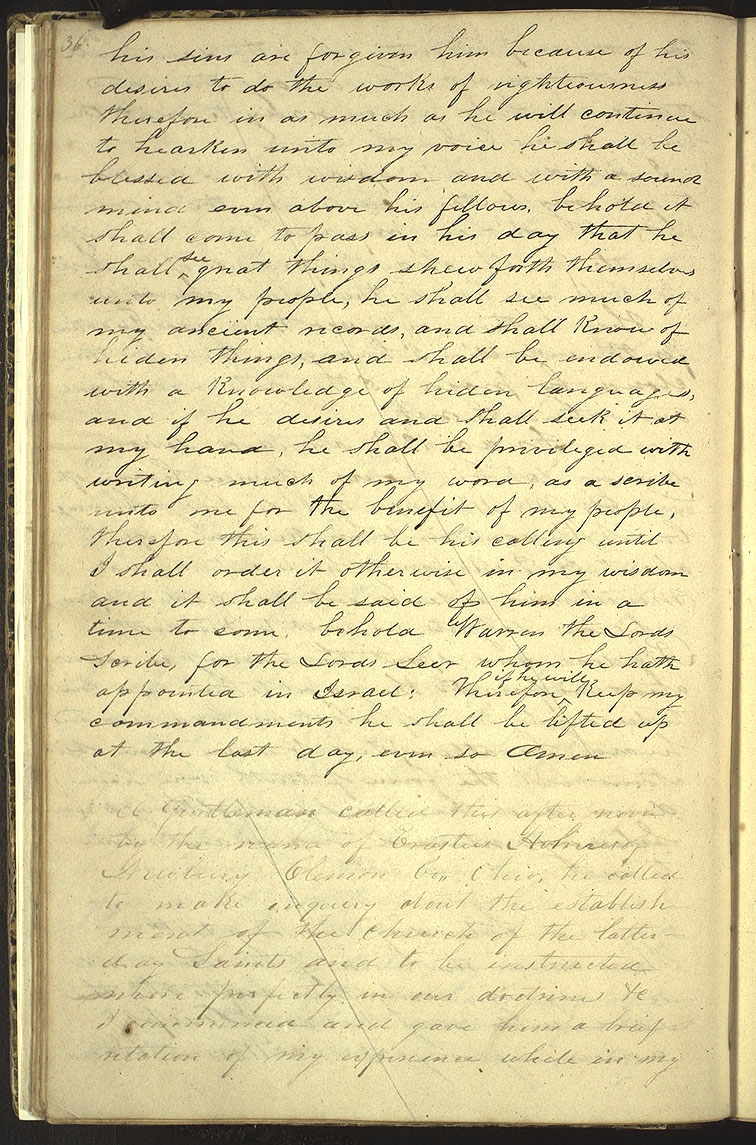 36
his sins are forgiven him because of his
desires to do the works of righteousness
therefore in as much as he will continue
to hearken unto my voice he shall be
blessed with wisdom and with a sound
mind even above his fellows, behold it
shall come to pass in his day that he
shall see great things shew forth themselves
unto my people, he shall see much of
my ancient records, and shall know of
hiden things, and shall be endowed
with a knowledge of hiden languages,
and if he desires and shall seek it at
my hand, he shall be privileged with
writing much of my word, as a scribe
unto me for the benefit of my people,
therefore this shall be his calling until
I shall order it otherwise in my wisdom
and it shall be said of him in a
time to come, behold Warren the Lords
Scribe, for the Lords Seer whom he hath
appointed in Israel: Therefore if he will keep my
commandments he shall be lifted up
at the last day, even so Amen
A Gentleman called this after noon
by the name of Erastus Holmes of
Newbury Clemon Co,, Ohio, he called
to make inquiry about the establish
ment of the church of the latter-
day Saints and to be instructed
more perfectly in our doctrine &c
I commenced and gave him a brief
relation of my experience while in my